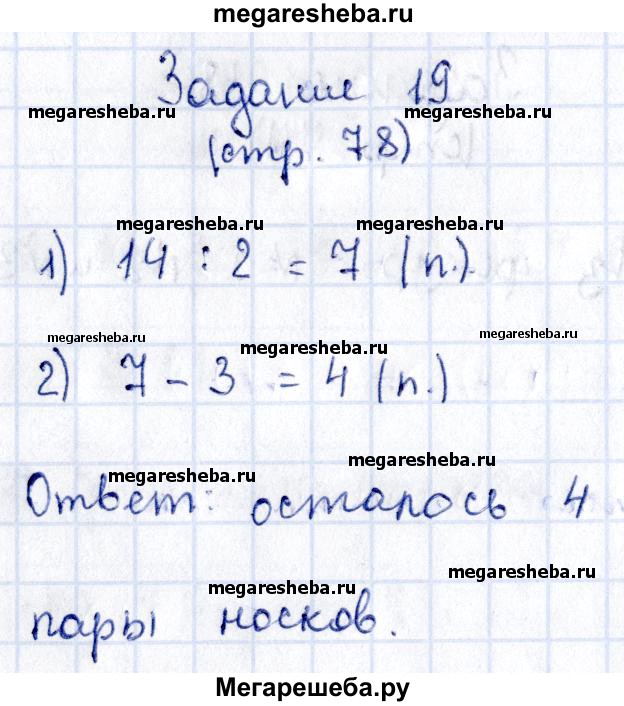 megaresheba.ru
Задание 19
megaresheba.ru megaresheba.ru
(стр. 78)
megaresheba.ru megaresheba.ru
1) 14 : 2 = 7 (п.)
megaresheba.ru megaresheba.ru megaresheba.ru
2) 7 - 3 = 4 (п.)
megaresheba.ru megaresheba.ru
Ответ: осталось 4
megaresheba.ru megaresheba.ru
пары носков.
Мегарешеба.ру